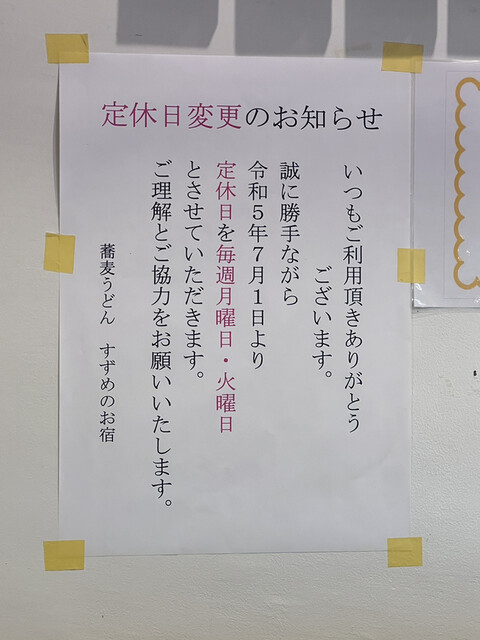 定休日変更のお知らせ
いつもご利用頂きありがとう
ございます。
誠に勝手ながら
令和5年7月1日より
定休日を毎週月曜日・火曜日
とさせていただきます。
ご理解とご協力をお願いいたします。
蕎麦うどん　すずめのお宿